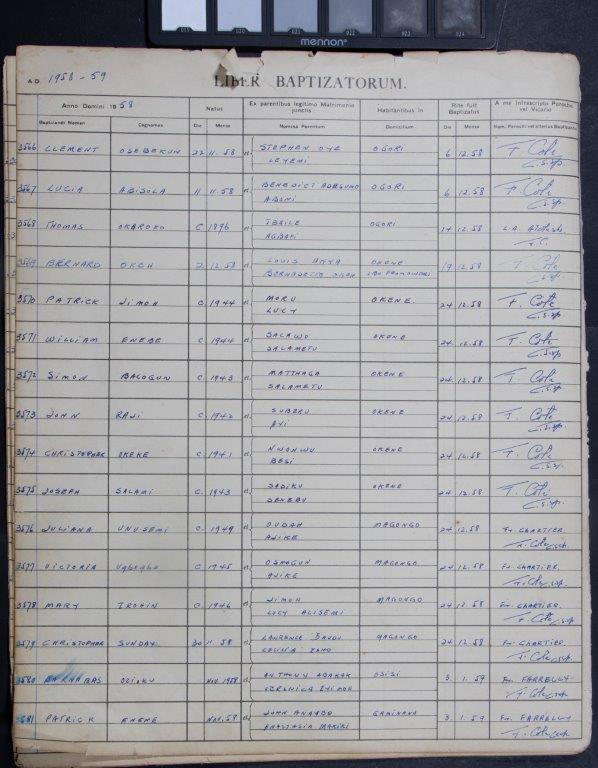 mennon
A.D. 1958-59
LIBER BAPTIZATORUM.
Anno Domini 1958 Natus Ex parentibus legitimo Matrimonio junctis Habitantibus in Rite fuit Baptizatus A me Infrascripto Parocho vel Vicario
Baptizandi Nomen Cognomen Die Mense Nomina Parentum Domicilium Die Mense Nom. Parochi vel alterius Baptizantis
3566 CLEMENT OSEBEKUN 22 11.58 et STEPHEN OYE OGORI 6 12.58 F. Cote
LEYEMI C.S.Sp.
3567 LUCIA ABISOLA 11 11.58 et BENEDICT ADEGUNO OGORI 6 12.58 F. Cote
ABONI C.S.Sp.
3568 THOMAS OKAROKO C 1896 IBAILE OGORI 14 12.58
AGBAFI
3569 BERNARD OKOH 2 12.58 LOUIS ANYA OKENE 19 12.58 F. Cote
BERNADETTE OKOH
3570 PATRICK JIMOH C. 1944 et MORU OKENE. 24 12.58 F. Cote
LUCY C.S.Sp.
3571 WILLIAM ENEBE C. 1944 et SALAWO OKENE 24 12.58 F. Cote
SALAMETU C.S.Sp.
3572 SIMON BALOGUN C. 1943 et MATTHAGA OKENE 24 12.58 F. Cote
SALAMETU C.S.Sp.
3573 JOHN RAJI C. 1942 et SUBERU OKENE 24 12.58 F. Cote
AYI C.S.Sp.
3574 CHRISTOPHER OKEKE C. 1941 et NWONWU OKENE 24 12.58 F. Cote
BESI C.S.Sp.
3575 JOSEPH SALAMI C. 1943 et SADIKU OKENE 24 12.58 F. Cote
SENEBU C.S.Sp.
3576 JULIANA UNUSEMI C. 1949 et OUDAH MAGONGO 24 12.58 Fr. CHARTIER.
AJIKE F. Cote, c.s.sp.
3577 VICTORIA Ugbogbo C 1945 et OSHAGUN MAGONGO 24 12.58 Fr. CHARTIER.
AJIKE F. Cote, c.s.sp.
3578 MARY IROHIN C. 1946 et JIMOH MAGONGO 24 12.58 Fr. CHARTIER.
LUCY ALISEMI F. Cote, c.s.sp.
3579 CHRISTOPHER SUNDAY 30 11.58 et LAWRENCE DAUDU MAGONGO 24 12.58 Fr. CHARTIER.
F. Cote, c.s.sp.
3580 BARNABAS ODIOKU NOV. 1958 et ANTHONY ADAKAK 3. 1.59 Fr. FARRELLY
VERONICA F. Cote, c.s.sp.
3581 PATRICK ENEME NOV. 58 et JOHN ANAABO 3. 1.59 Fr. FARRELLY
ANASTASIA F. Cote, c.s.sp.